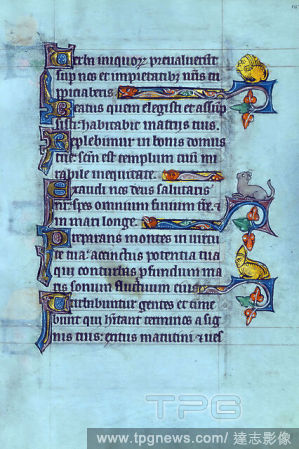 Verba iniquoꝝ prevaluerūt
sup nos et impietatibꝫ nr̄is tu
ppiciaberis
Beatus quem elegisti et assūp
sti: habitabit in atriis tuis.
Replebimur in bonis domus
tue: scm̄ est templum tuū mi
rabile in equitate.
Exaudi nos deus salutaris
nr̄: spes omnium finium tr̄e. et
in mari longe.
Preparans montes in virtu
te tua accinctus potentia tua
qui conturbas pfundum ma
ris sonum fluctuum eius
Turbabuntur gentes et time
bunt qui hītant terminos a sig
nis tuis: exitus matutini et ves
TPG
www.tpgnews.com/ 達志影像